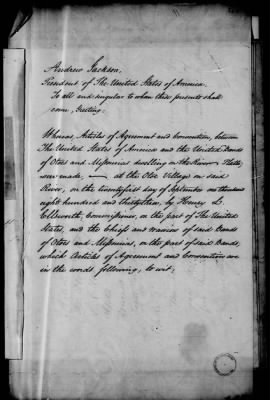 Andrew Jackson,
President of The United States of America
To all and singular to whom these presents shall
come, Greeting:
Whereas Articles of Agreement and Convention, between
The United States of America and the United Bands
of Otoes and Missourias dwelling on the River Platte,
were made, — at the Otoe Village on said
River, on the twenty first day of September one thousand
eight hundred and thirty three, by Henry L.
Ellsworth, Commissioner, on the part of The United
States, and the Chiefs and warriors of said Bands
of Otoes and Missourias, on the part of said Bands;
which Articles of Agreement and Convention are
in the words following, to wit;